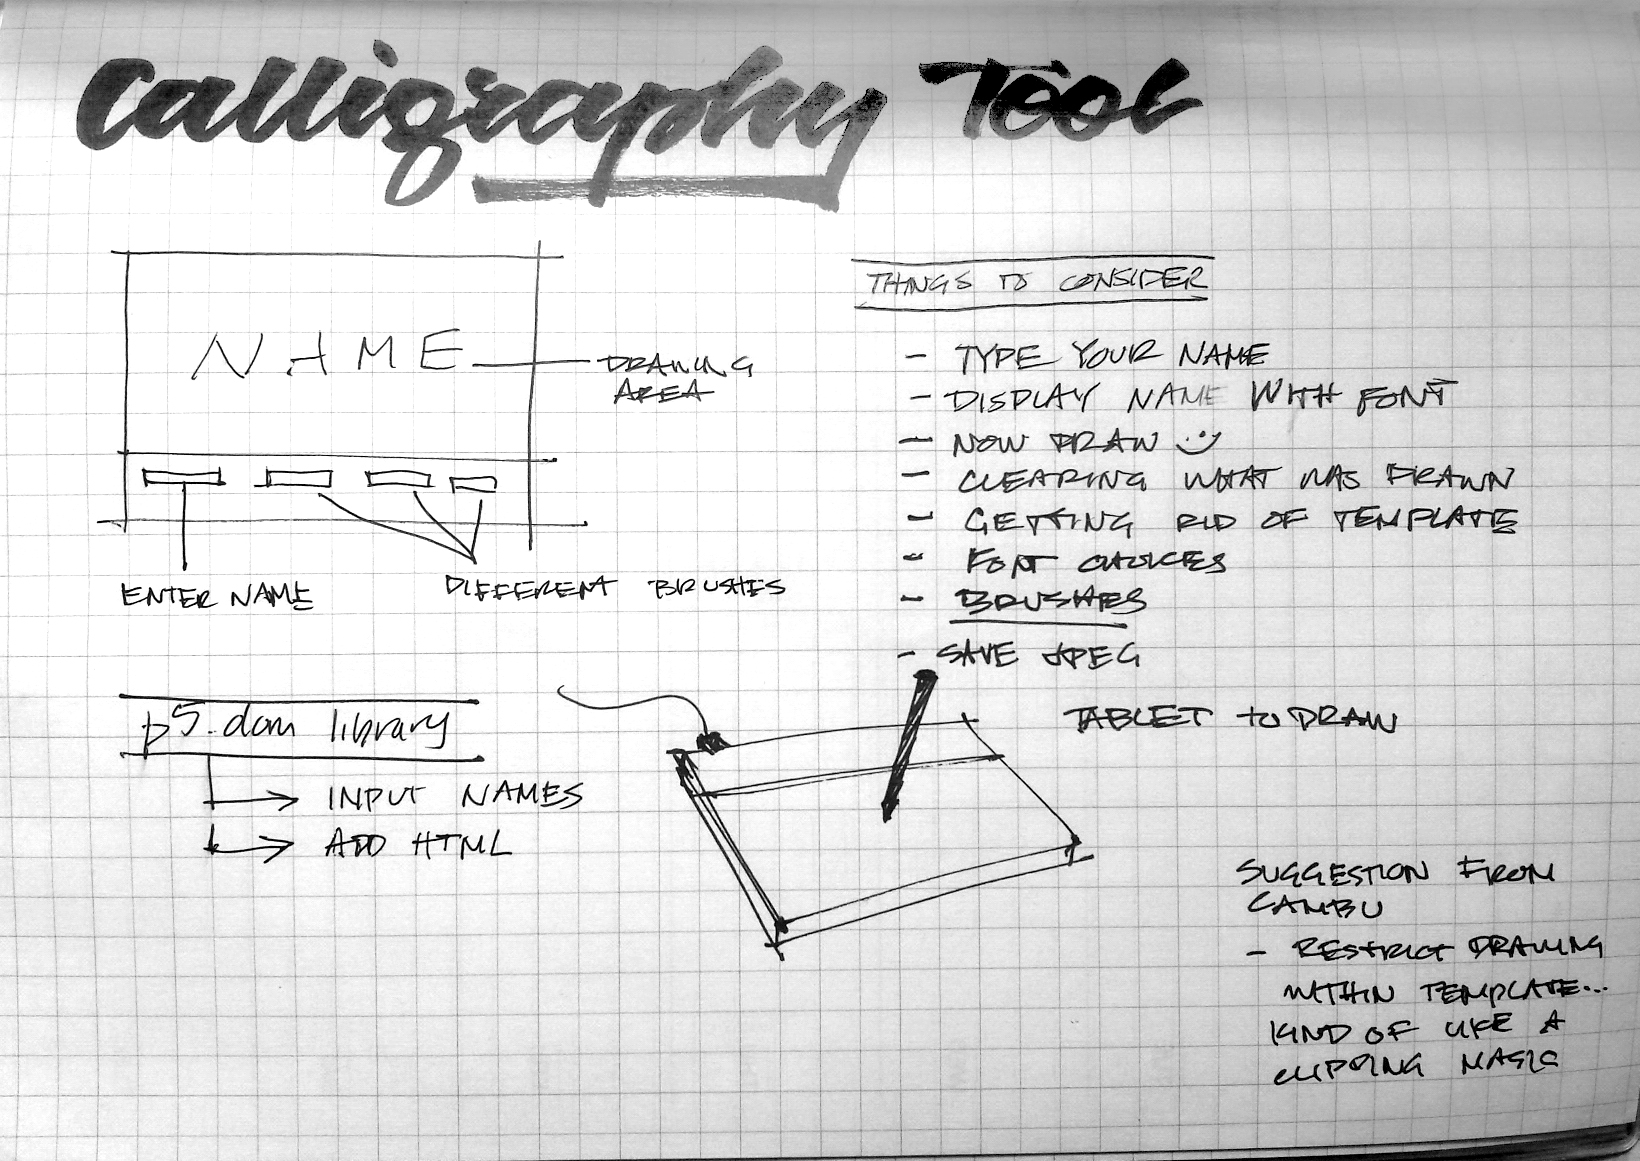 Calligraphy Tool
NAME
DRAWING
AREA
ENTER NAME
DIFFERENT BRUSHES
THINGS TO CONSIDER
- TYPE YOUR NAME
- DISPLAY NAME WITH FONT
- NOW DRAW
- CLEARING WHAT WAS DRAWN
- GETTING RID OF TEMPLATE
- FONT CHOICES
- BRUSHES
- SAVE JPEG
p5.dom library
INPUT NAMES
ADD HTML
TABLET to DRAW
SUGGESTION FROM
CAMBU
- RESTRICT DRAWING
WITHIN TEMPLATE...
KIND OF LIKE A
CLIPPING